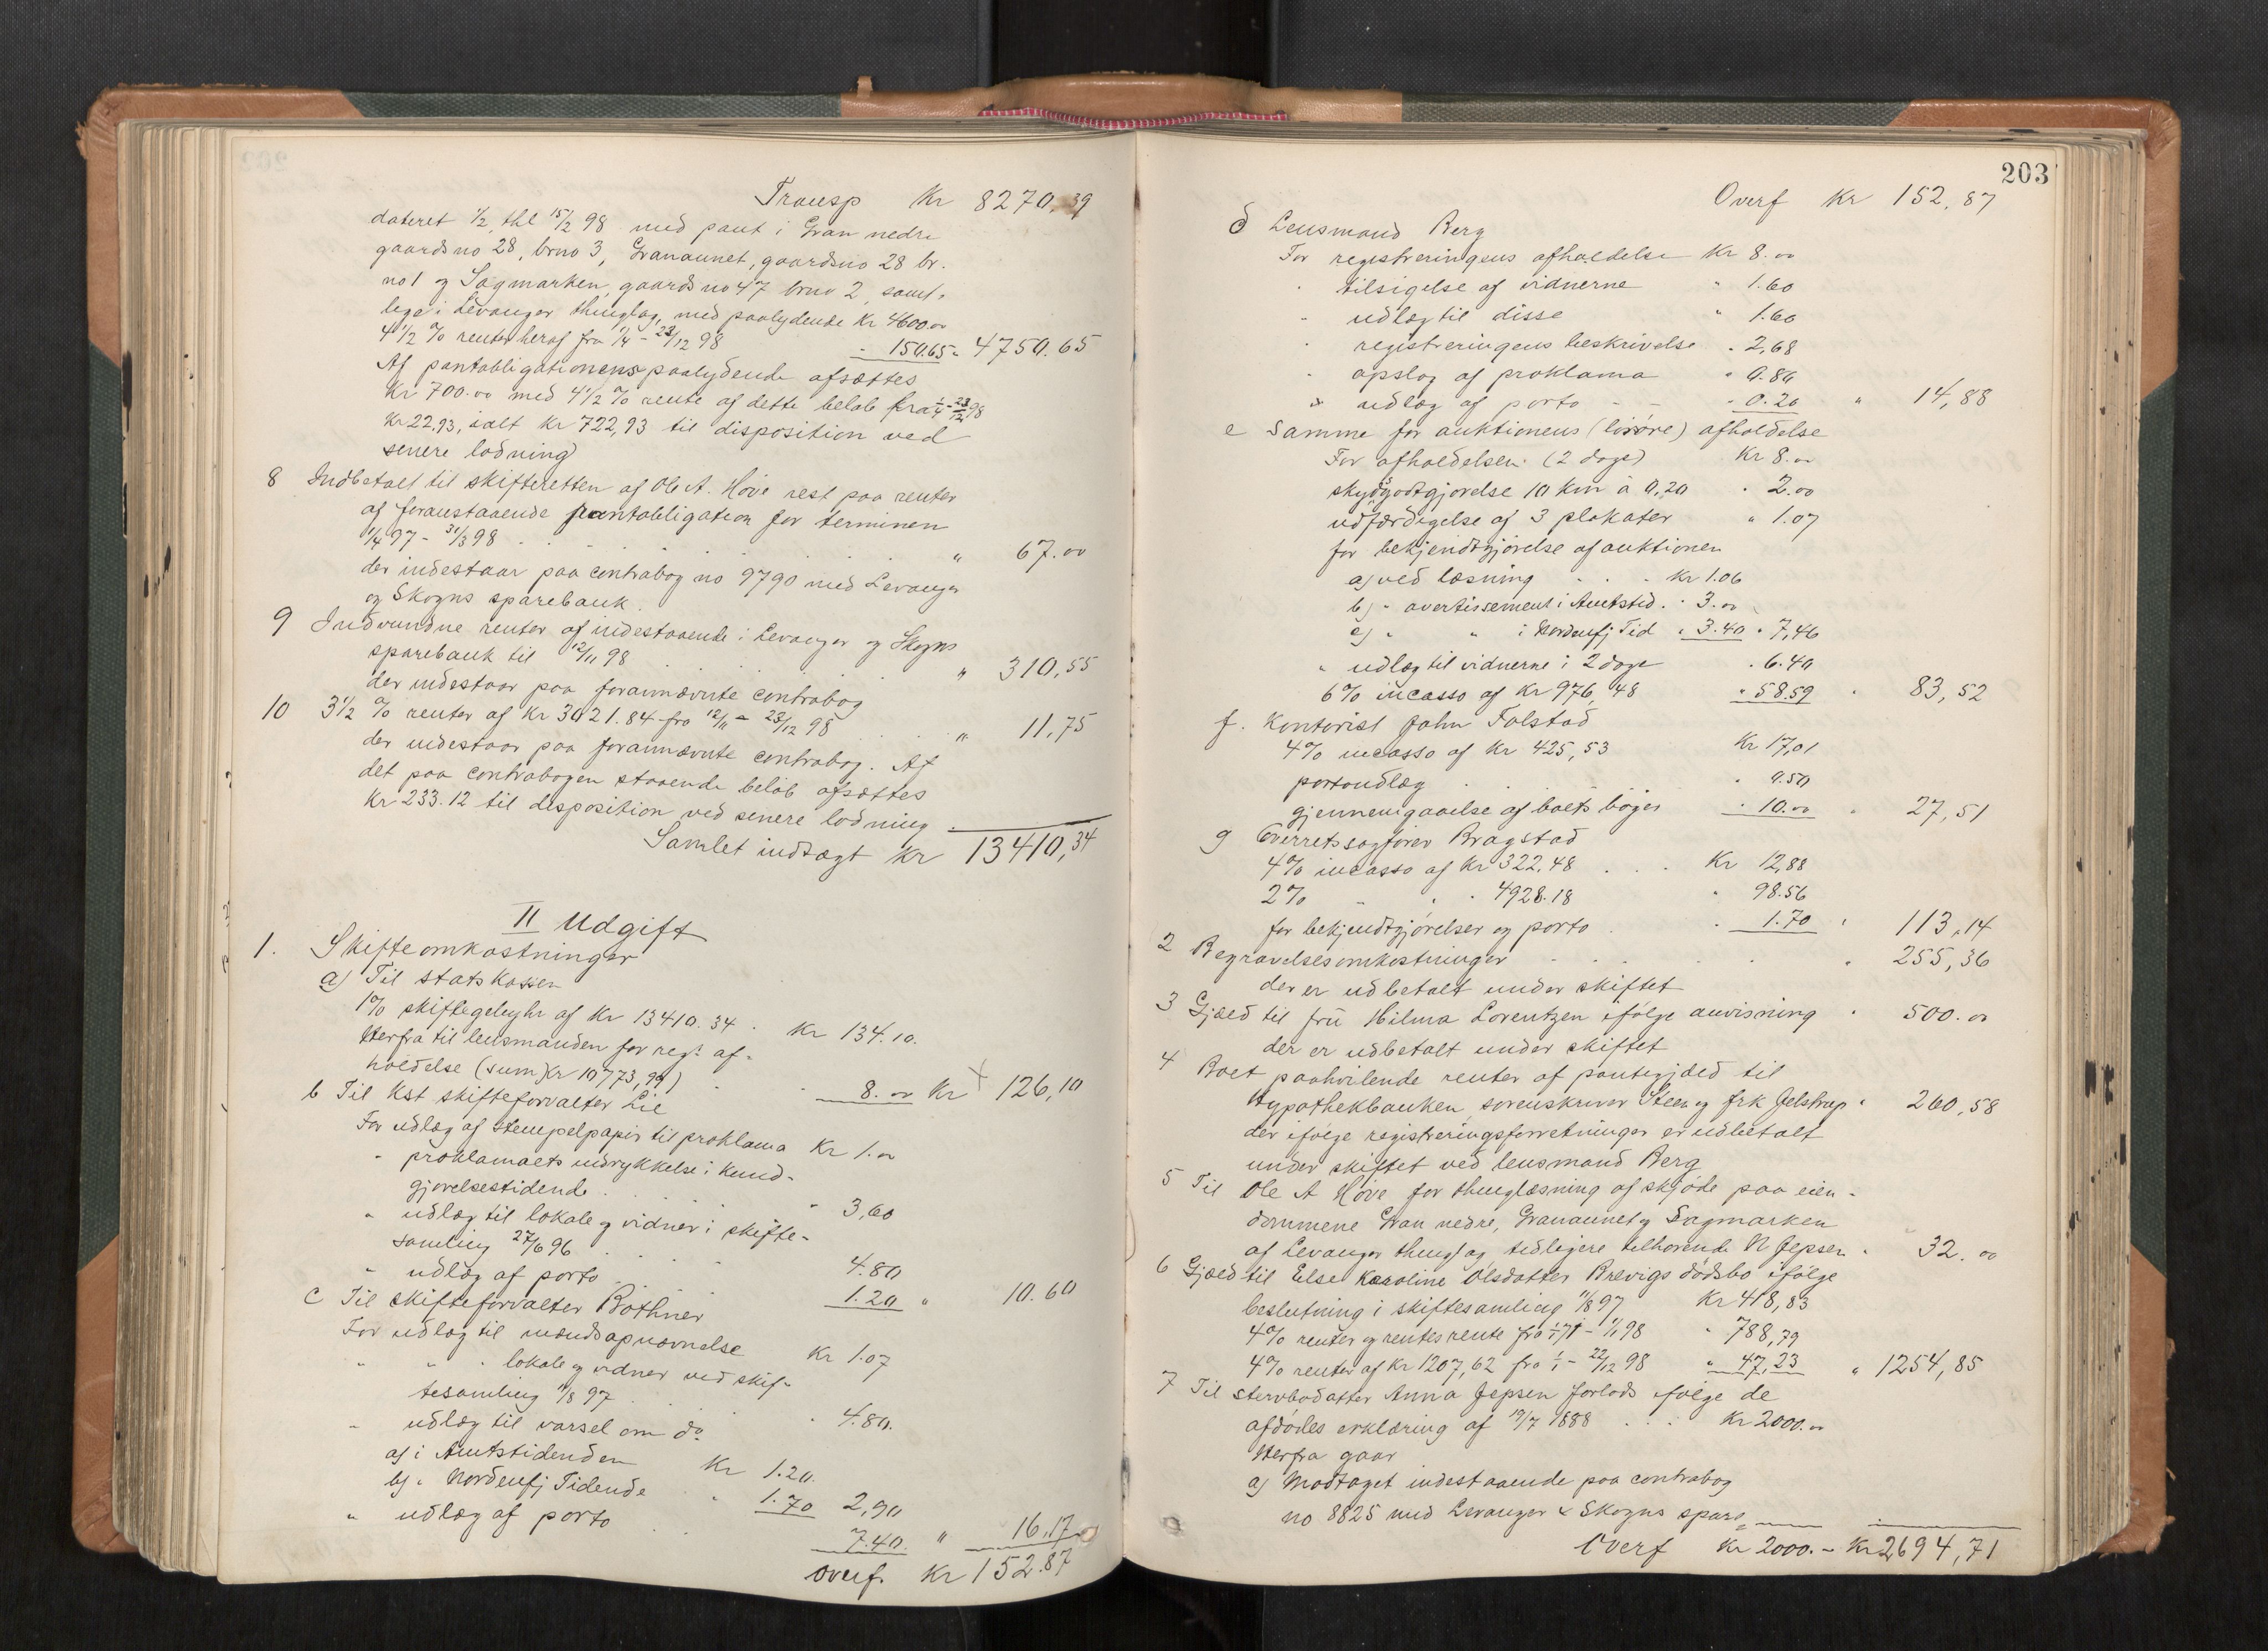 Transp Kr 8270,39
dateret 1/2, thl 15/2 98 med pant i Gran nedre
gaardsno 28, brno 3, Granaunet, gaardsno 28 br.
no 1 og Sagmarken, gaardsno 47 brno 2, samt-
lege i Levanger thinglag, med paalydende Kr 4600.00
4 1/2 % renter heraf fra 1/4 - 23/12 98 " 150.65 " 4750.65
Af pantobligationens paalydende afsættes
Kr 700.00 med 4 1/2 % rente af dette beløb fra 1/4 - 23/12 98
Kr 22,93, ialt Kr 722,93 til disposition ved
senere lodning
8 Indbetalt til skifteretten af Ole A. Høve rest paa renter
af foranstaaende pantobligation for terminen
1/4 97 - 31/3 98 . . . " 67.00
der indestaar paa contrabog no 9790 med Levanger
og Skogns sparebank.
9 Indvundne renter af indestaaende i Levanger og Skogns
sparebank til 12/11 98 . . . " 310,55
der indestaar paa forannævnte contrabog
10 3 1/2 % renter af Kr 3021.84 fra 12/11 - 23/12 98 . . " 11,75
der indestaar paa forannævnte contrabog. Af
det paa contrabogen staaende beløb afsættes
Kr 233.12 til disposition ved senere lodning.
Samlet indtægt Kr 13410,34
II Udgift
1. Skifteomkostninger
a) Til statskassen
1% skiftegebyhr af Kr 13410.34 . Kr 134.10.
Herfra til lensmanden for regs af-
holdelse (sum Kr 10773,99) . . 8.00 Kr 126,10
b Til Kst skifteforvalter Lie
For udlæg af stempelpapir til proklama Kr 1.00
" proklamaets indrykkelse i Kund-
gjørelsestidende . . . " 3,60
" udlæg til lokale og vidner i skifte-
samling 27/6 96 . . . 4.80
" udlæg af porto . . 1.20 " 10.60
c Til skifteforvalter Bothner
For udlæg til mændsopnævnelse Kr 1.07
" " " lokale og vidner ved skif-
tesamling 11/8 97 . . . 4.80.
" udlæg til varsel om do
a) i Amtstidenden Kr 1.20.
b) " Nordenfj Tidende " 1.70 2,90
" udlæg af porto . . 7.40. " 16,17
Overf. Kr 152.87
203
Overf Kr 152,87
d Lensmand Berg
For registreringens afholdelse Kr 8.00
" tilsigelse af vidnerne " 1.60
" udlæg til disse " 1.60
" registreringens beskrivelse " 2,68
" opslag af proklama " 0.80
" udlæg af porto - - " 0.20 " 14,88
e Samme for auktionens (løsøre) afholdelse
For afholdelsen (2 dage) Kr 8.00
skydsgodtgjørelse 10 km à 0,20 " 2.00
udfærdigelse af 3 plakater " 1.07
for bekjendtgjørelse af auktionen
a) ved læsning . . . Kr 1.06
b) " avertissement i Amtstid. " 3.00
c) " " i Nordenfj Tid " 3.40 " 7,46
" udlæg til vidnerne i 2 dage " 6.40
6% incasso af Kr 976,48 " 58.59 " 83,52
f. Kontorist John Falstad
4% incasso af Kr 425,53 Kr 17,01
portoudlæg . . . " 0.50
gjennemgaaelse af boets bøger " 10.00 " 27,51
g Overretssagfører Bragstad
4% incasso af Kr 322,48 . . . Kr 12,88
2% " " " 4928.18 " 98.56
for bekjendtgjørelser og porto . " 1.70 " 113,14
2 Begravelsesomkostninger . . . " 255,36
der er udbetalt under skiftet
3 Gjæld til fru Hilma Lorentzen ifølge anvisning " 500.00
der er udbetalt under skiftet
4 Boet paahvilende renter af pantegjæld til
Hypothekbanken, sorenskriver Steen og frk Jelstrup " 260,58
der ifølge registreringsforretninger er udbetalt
under skiftet ved lensmand Berg
5 Til Ole A Høve for thinglæsning af skjøde paa eien-
dommene Gran nedre, Granaunet og Sagmarken
af Levanger thinglag tidligere tilhørende N Jepsen " 32.00
6 Gjæld til Else Karoline Olsdatter Brevigs dødsbo ifølge
beslutning i skiftesamling 11/8 97 Kr 418,83
4% renter og rentesrente fra 1/1 71 - 1/1 98 " 788,79
4% renter af Kr 1207,62 fra 1/1 - 22/12 98 " 47,23 " 1254,85
7 Til stervbodatter Anna Jepsen forlods ifølge de
afdødes erklæring af 19/7 1888 . . . Kr 2000.00
Herfra gaar
a) Modtaget indestaaende paa contrabog
no 8825 med Levanger & Skogns spare=
Overf Kr 2000.- Kr 2694,71